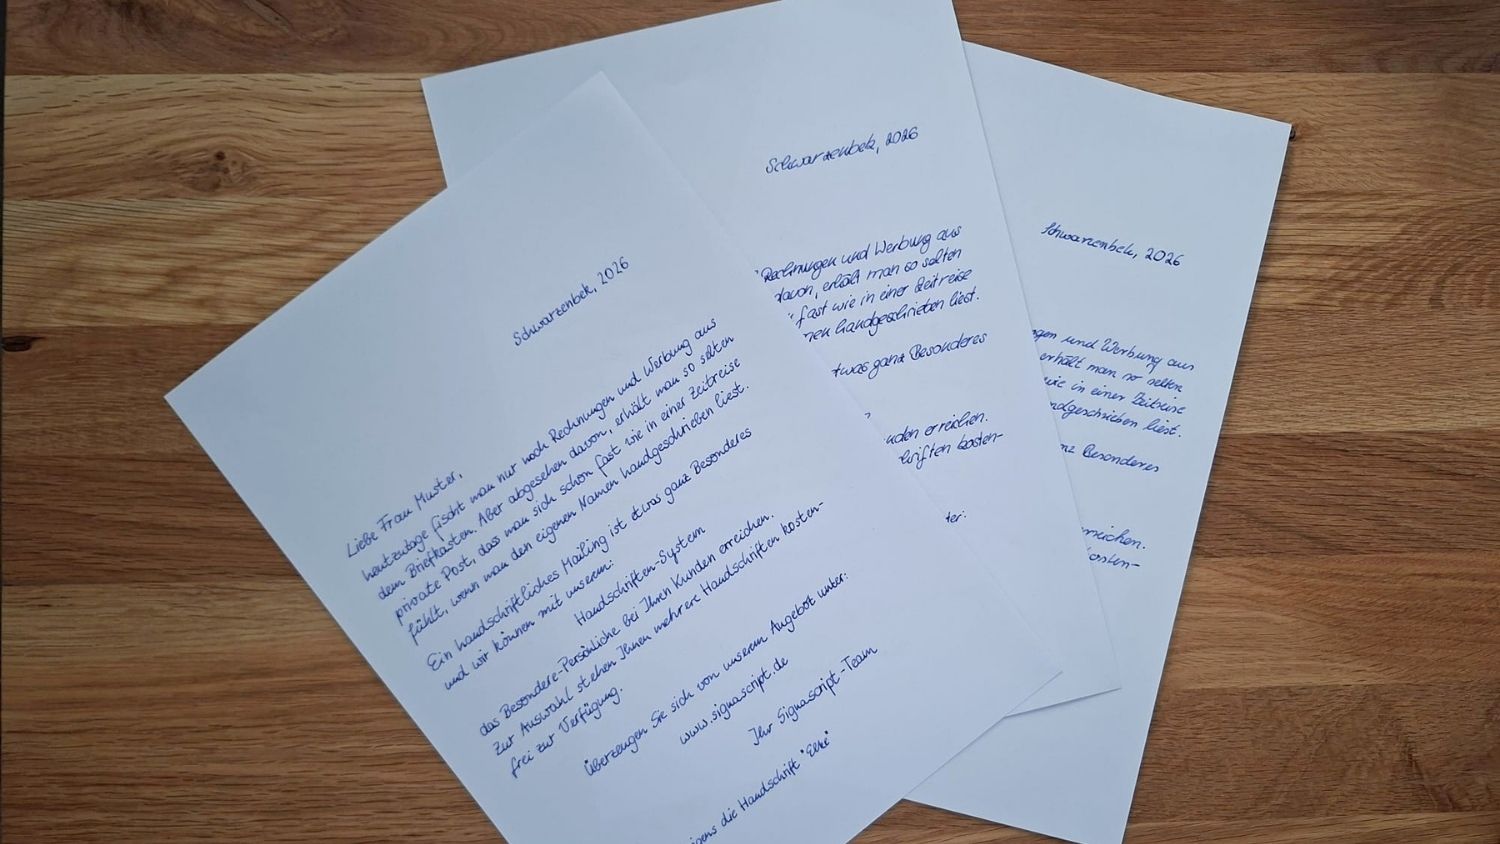 Schwarzenbek, 2026
Liebe Frau Muster,
heutzutage fischt man nur noch Rechnungen und Werbung aus
dem Briefkasten. Aber abgesehen davon, erhält man so selten
private Post, dass man sich schon fast wie in einer Zeitreise
fühlt, wenn man den eigenen Namen handgeschrieben liest.
Ein handschriftliches Mailing ist etwas ganz Besonderes
und wir können mit unserem:
Handschriften-System
das Besondere-Persönliche bei Ihren Kunden erreichen.
Zur Auswahl stehen Ihnen mehrere Handschriften kosten-
frei zur Verfügung.
Überzeugen Sie sich von unserem Angebot unter:
www.signascript.de
Ihr Signascript-Team
die Handschrift "Elke"
Schwarzenbek, 2026
Rechnungen und Werbung aus
davon, erhält man so selten
fast wie in einer Zeitreise
handgeschrieben liest.
ganz Besonderes
erreichen.
kosten-
Schwarzenbek, 2026
und Werbung aus
erhält man so selten
wie in einer Zeitreise
liest.
Besonderes